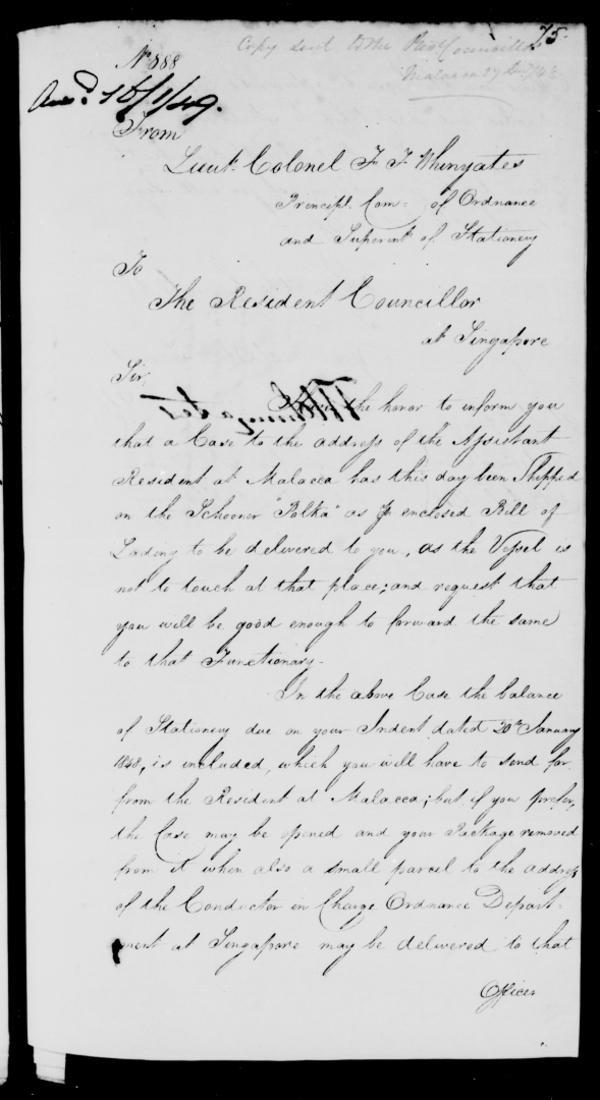 75.
Copy sent to the Rest Councillor
Malacca
No 588
Ansd. 16/1/49.
From
Lieut. Colonel F. F. Whinyates
Princepl. Com= of Ordnance
and Superint of Stationery
To
The Resident Councillor
at Singapore
Sir,
the honor to inform you
that a Case to the address of the Assistant
Resident at Malacca has this day been Shipped
on the Schooner "Polka" as pr enclosed Bill of
Lading to be delivered to you, as the Vessel is
not to touch at that place; and request that
you will be good enough to forward the same
to that Functionary.
In the above Case the balance
of Stationery due on your Indent dated 20th January
1848, is included, which you will have to send for
from the Resident at Malacca; but if you prefer,
the Case may be opened and your Package removed
from it when also a small parcel to the address
of the Conductor in Charge Ordnance Depart-
ment at Singapore may be delivered to that
Officer